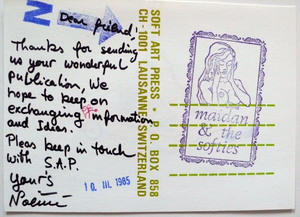 N
Dear friend,
Thanks for sending
us your wonderful
publication, We
hope to keep on
exchanging information
and Ideas.
Pleas keep in touch
with S.A.P.
Your's
Noemi
10. III. 1985
SOFT ART PRESS • P.O. BOX 858
CH-1001 LAUSANNE • SWITZERLAND
maidan
& the
softies